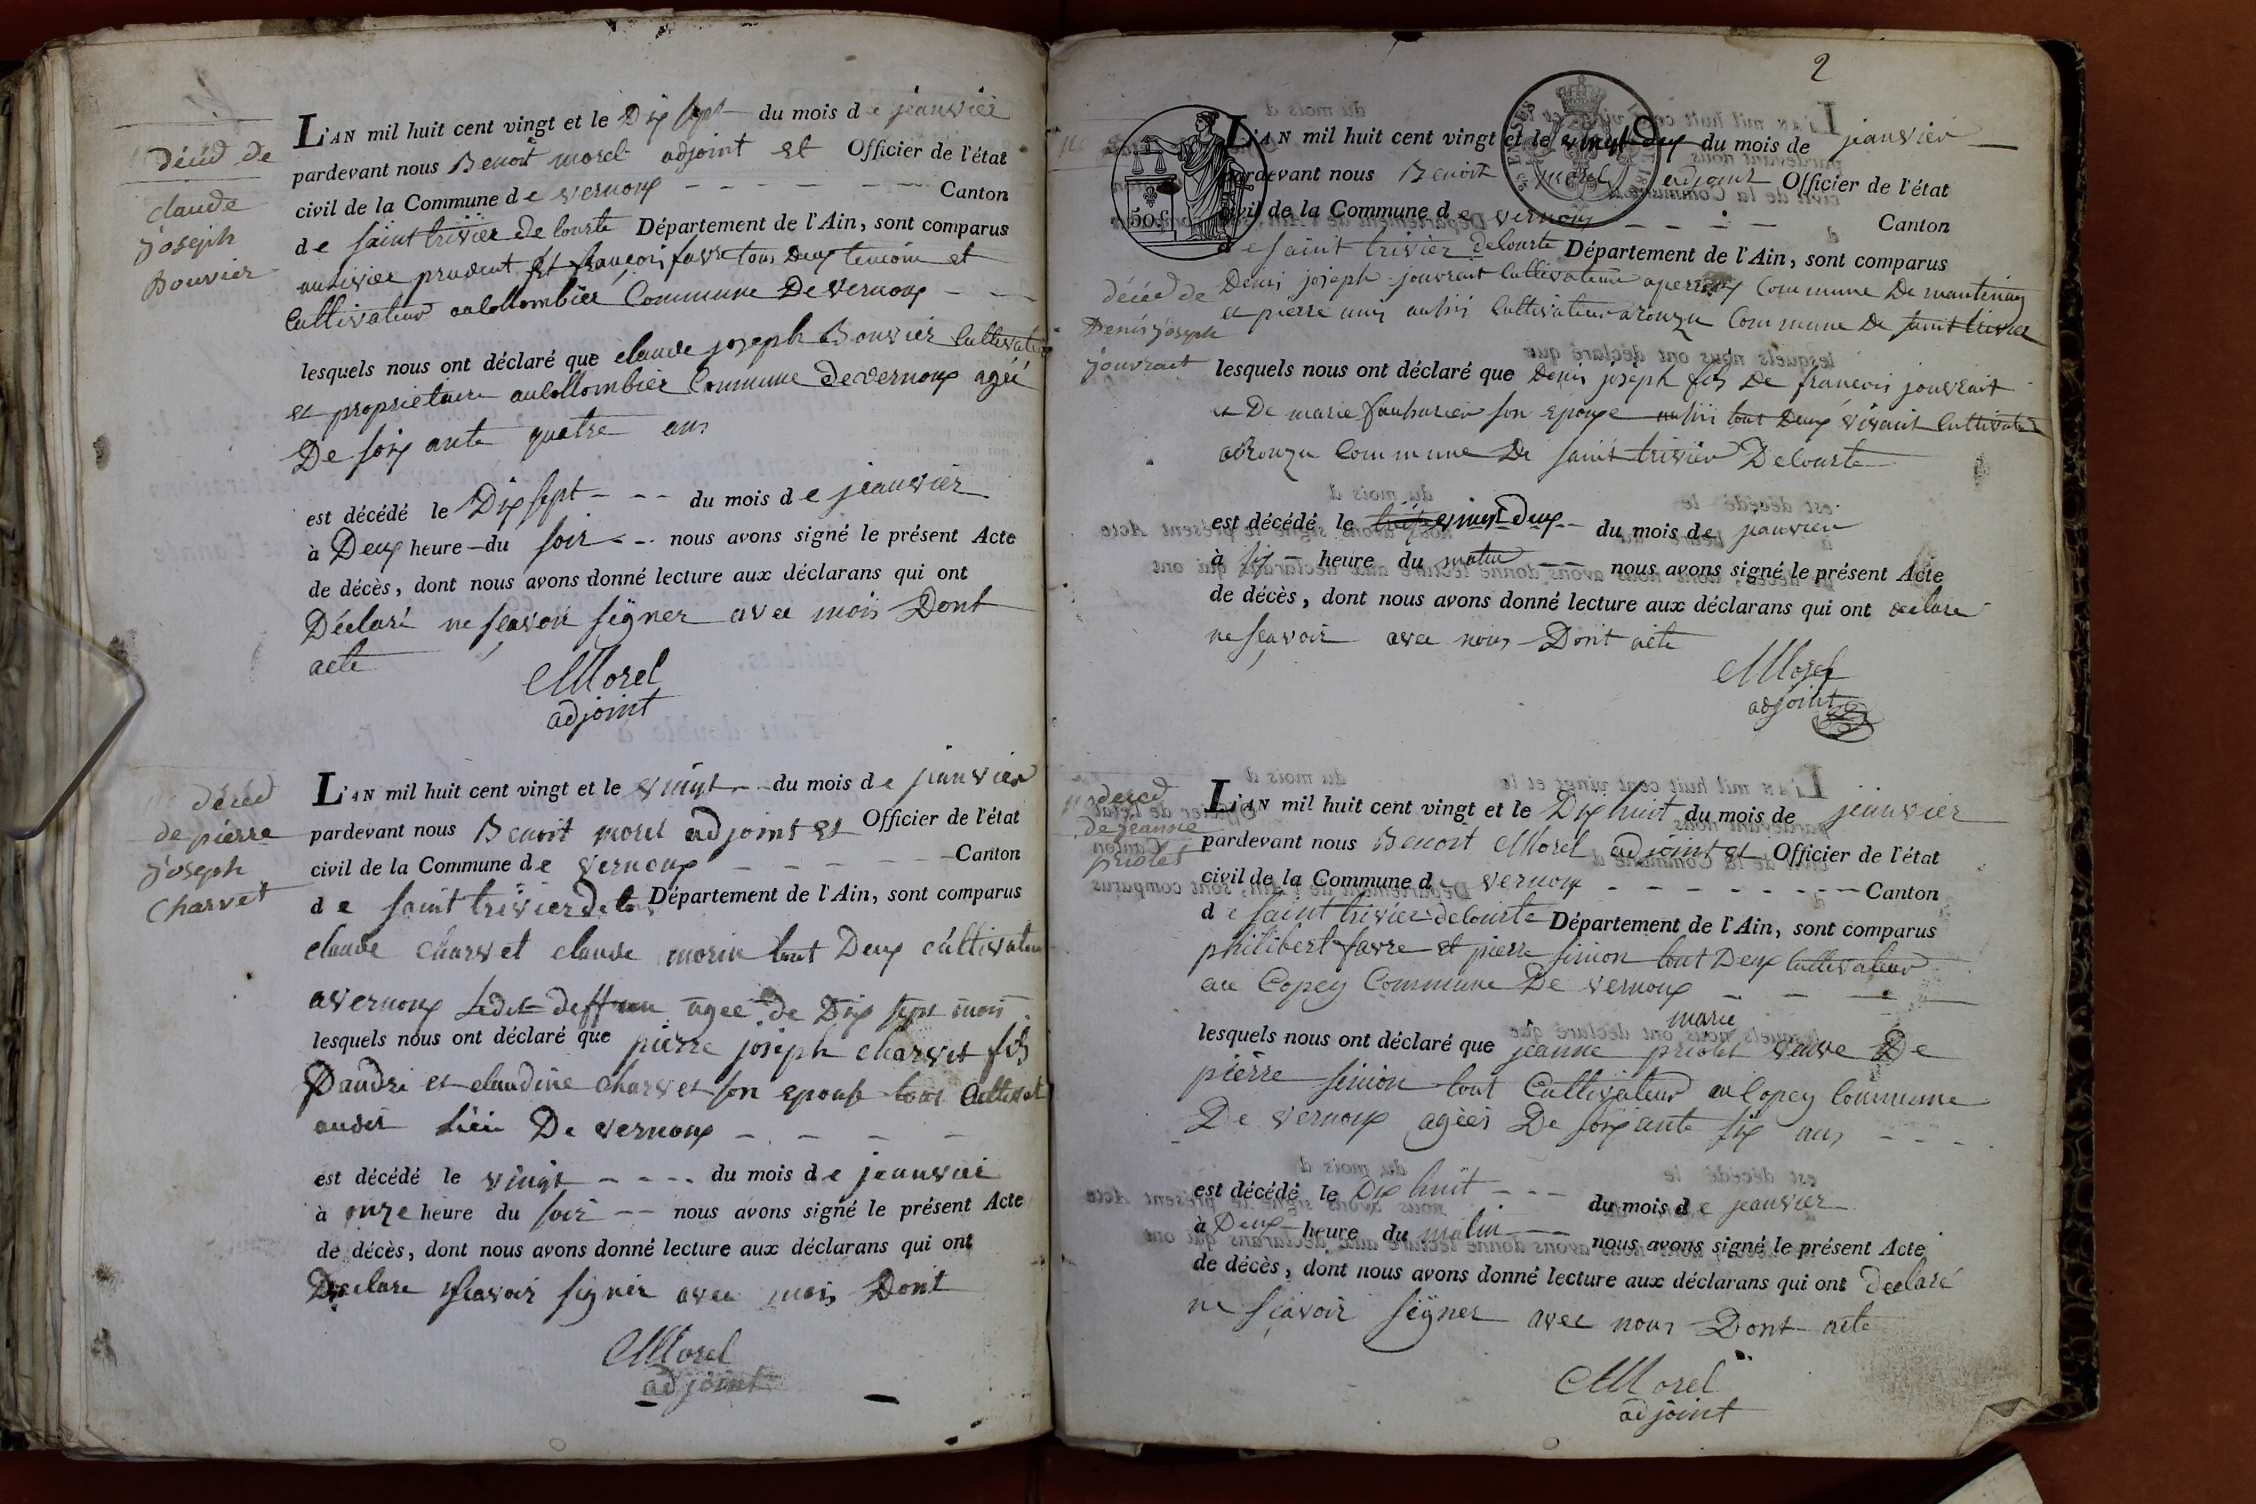 décéd de
claude
joseph
Bouvier
L'AN mil huit cent vingt et le Dix sept du mois de jeanvier
pardevant nous Benoit morel adjoint et Officier de l'état
civil de la Commune de vernoux Canton
de saint trivier de courte Département de l'Ain, sont comparus
prudent et françois favre tous Deux temoins et
Cultivateur au Collombier Commune De vernoux
lesquels nous ont déclaré que claude joseph Bouvier Cultivateur
et proprietaire au Collombier Commune de vernoux ageé
De soix ante quatre ans
est décédé le Dix sept du mois de jeanvier
à Deux heure du soir nous avons signé le présent Acte
de décès, dont nous avons donné lecture aux déclarans qui ont
Déclaré ne sçavoir signer avec mois Dont
acte
Morel
adjoint
décéd
de pierre
joseph
Charvet
L'AN mil huit cent vingt et le vingt du mois de jeanvier
pardevant nous Benoit morel adjoint et Officier de l'état
civil de la Commune de vernoux Canton
de saint trivier de Département de l'Ain, sont comparus
claude Charvet claude morin tout Deux cultivateur
a vernoux Ledit deffun agee de Dix sept mois
lesquels nous ont déclaré que pierre joseph charvet fils
Dandré et claudine charvet son epouse tous Cultivat
audit lieu De vernoux
est décédé le vingt du mois de jeanvier
à onze heure du soir nous avons signé le présent Acte
de décès, dont nous avons donné lecture aux déclarans qui ont
Declare sçavoir signer avec mois Dont
Morel
adjoint
2
50c
décéd de
Denis joseph
jouvrait
L'AN mil huit cent vingt et le vingt deux du mois de jeanvier
pardevant nous Benoit morel adjoint Officier de l'état
civil de la Commune de vernoux Canton
de saint trivier de Courte Département de l'Ain, sont comparus
Denis joseph jouvrait Cultivateur Commune De mantenay
et pierre aussi Cultivateur a ronzu Commune De saint trivier
lesquels nous ont déclaré que Denis joseph fils De francois jouvrait
et De marie son epouse aussi tout Deux vivant Cultivateur
a Ronzu Commune De saint trivier De Courte
est décédé le vingt deux du mois de jeanvier
à six heure du matin nous avons signé le présent Acte
de décès, dont nous avons donné lecture aux déclarans qui ont declare
ne sçavoir avec nous Dont acte
Morel
adjoint
déced
de jeanne
priolet
L'AN mil huit cent vingt et le Dix huit du mois de jeanvier
pardevant nous Benoit Morel adjoint et Officier de l'état
civil de la Commune de vernoux Canton
de saint trivier de Courte Département de l'Ain, sont comparus
philibert favre et pierre simon tout Deux Cultivateur
au Copey Commune De vernoux
marie
lesquels nous ont déclaré que jeanne priolet veuve De
pierre simon tout Cultivateur au Copey Commune
De vernoux agées De soixante six ans
est décédé le Dix huit du mois de jeanvier
à Deux heure du matin nous avons signé le présent Acte
de décès, dont nous avons donné lecture aux déclarans qui ont declaré
ne sçavoir signer avec nous Dont acte
Morel
adjoint